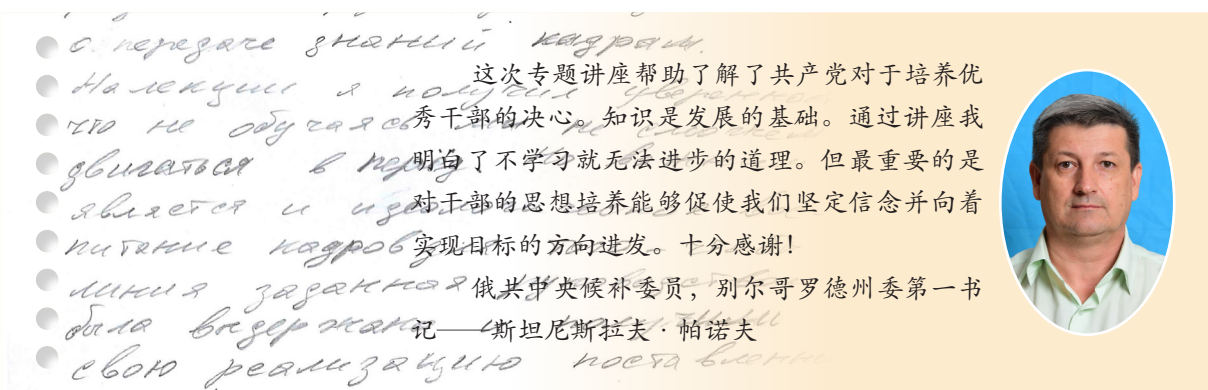 о передаче знаний кадрам.
На лекции я получил уверенно
что не обучаясь
двигаться в перед
является и
питание кадров
линия заданная
была выдержана и
свою реализацию поставленн
这次专题讲座帮助了解了共产党对于培养优
秀干部的决心。知识是发展的基础。通过讲座我
明白了不学习就无法进步的道理。但最重要的是
对干部的思想培养能够促使我们坚定信念并向着
实现目标的方向进发。十分感谢！
俄共中央候补委员，别尔哥罗德州委第一书
记——斯坦尼斯拉夫·帕诺夫